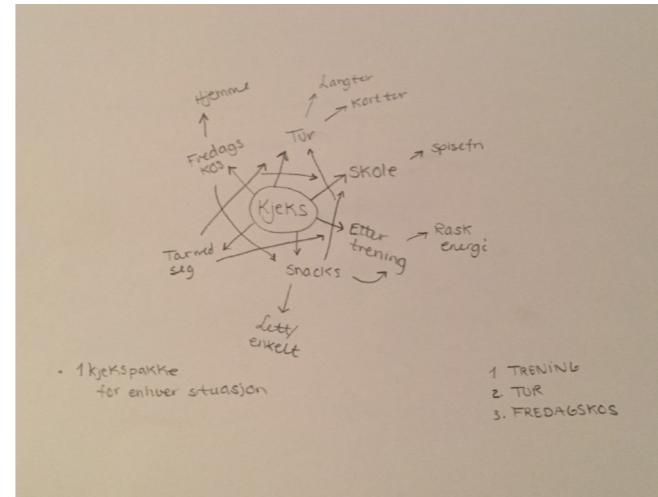 Hjemme
Langtur
Kort tur
Tur
Fredags
kos
Skole
Spisefri
Kjeks
Etter
trening
Rask
energi
Tar med
seg
Snacks
Lett/
enkelt
- 1 kjekspakke
for enhver situasjon
1 TRENING
2. TUR
3. FREDAGSKOS